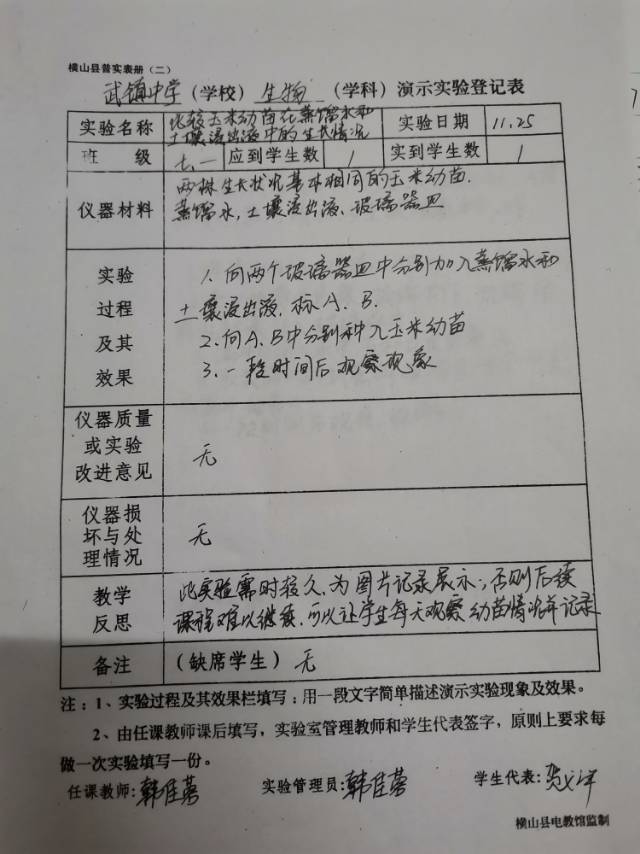 横山县普实表册（二）
武镇中学（学校）生物（学科）演示实验登记表
实验名称 比较玉米幼苗在蒸馏水和
土壤浸出液中的生长情况
实验日期 11.25
班 级 七.一 应到学生数 1 实到学生数 1
仪器材料
两株生长状况基本相同的玉米幼苗.
蒸馏水,土壤浸出液、玻璃器皿
实验
过程
及其
效果
1. 向两个玻璃器皿中分别加入蒸馏水和
土壤浸出液.标A、B.
2.向A、B中分别种入玉米幼苗
3.一段时间后观察现象
仪器质量
或实验
改进意见
无
仪器损
坏与处
理情况
无
教学
反思
此实验需时较久,为图片记录展示.,否则后续
课程难以继续,可以让学生每天观察幼苗情况并记录
备注 （缺席学生）无
注：1、实验过程及其效果栏填写：用一段文字简单描述演示实验现象及效果。
2、由任课教师课后填写，实验室管理教师和学生代表签字，原则上要求每
做一次实验填写一份。
任课教师: 韩佳蓉 实验管理员: 韩佳蓉 学生代表: 贺
横山县电教馆监制